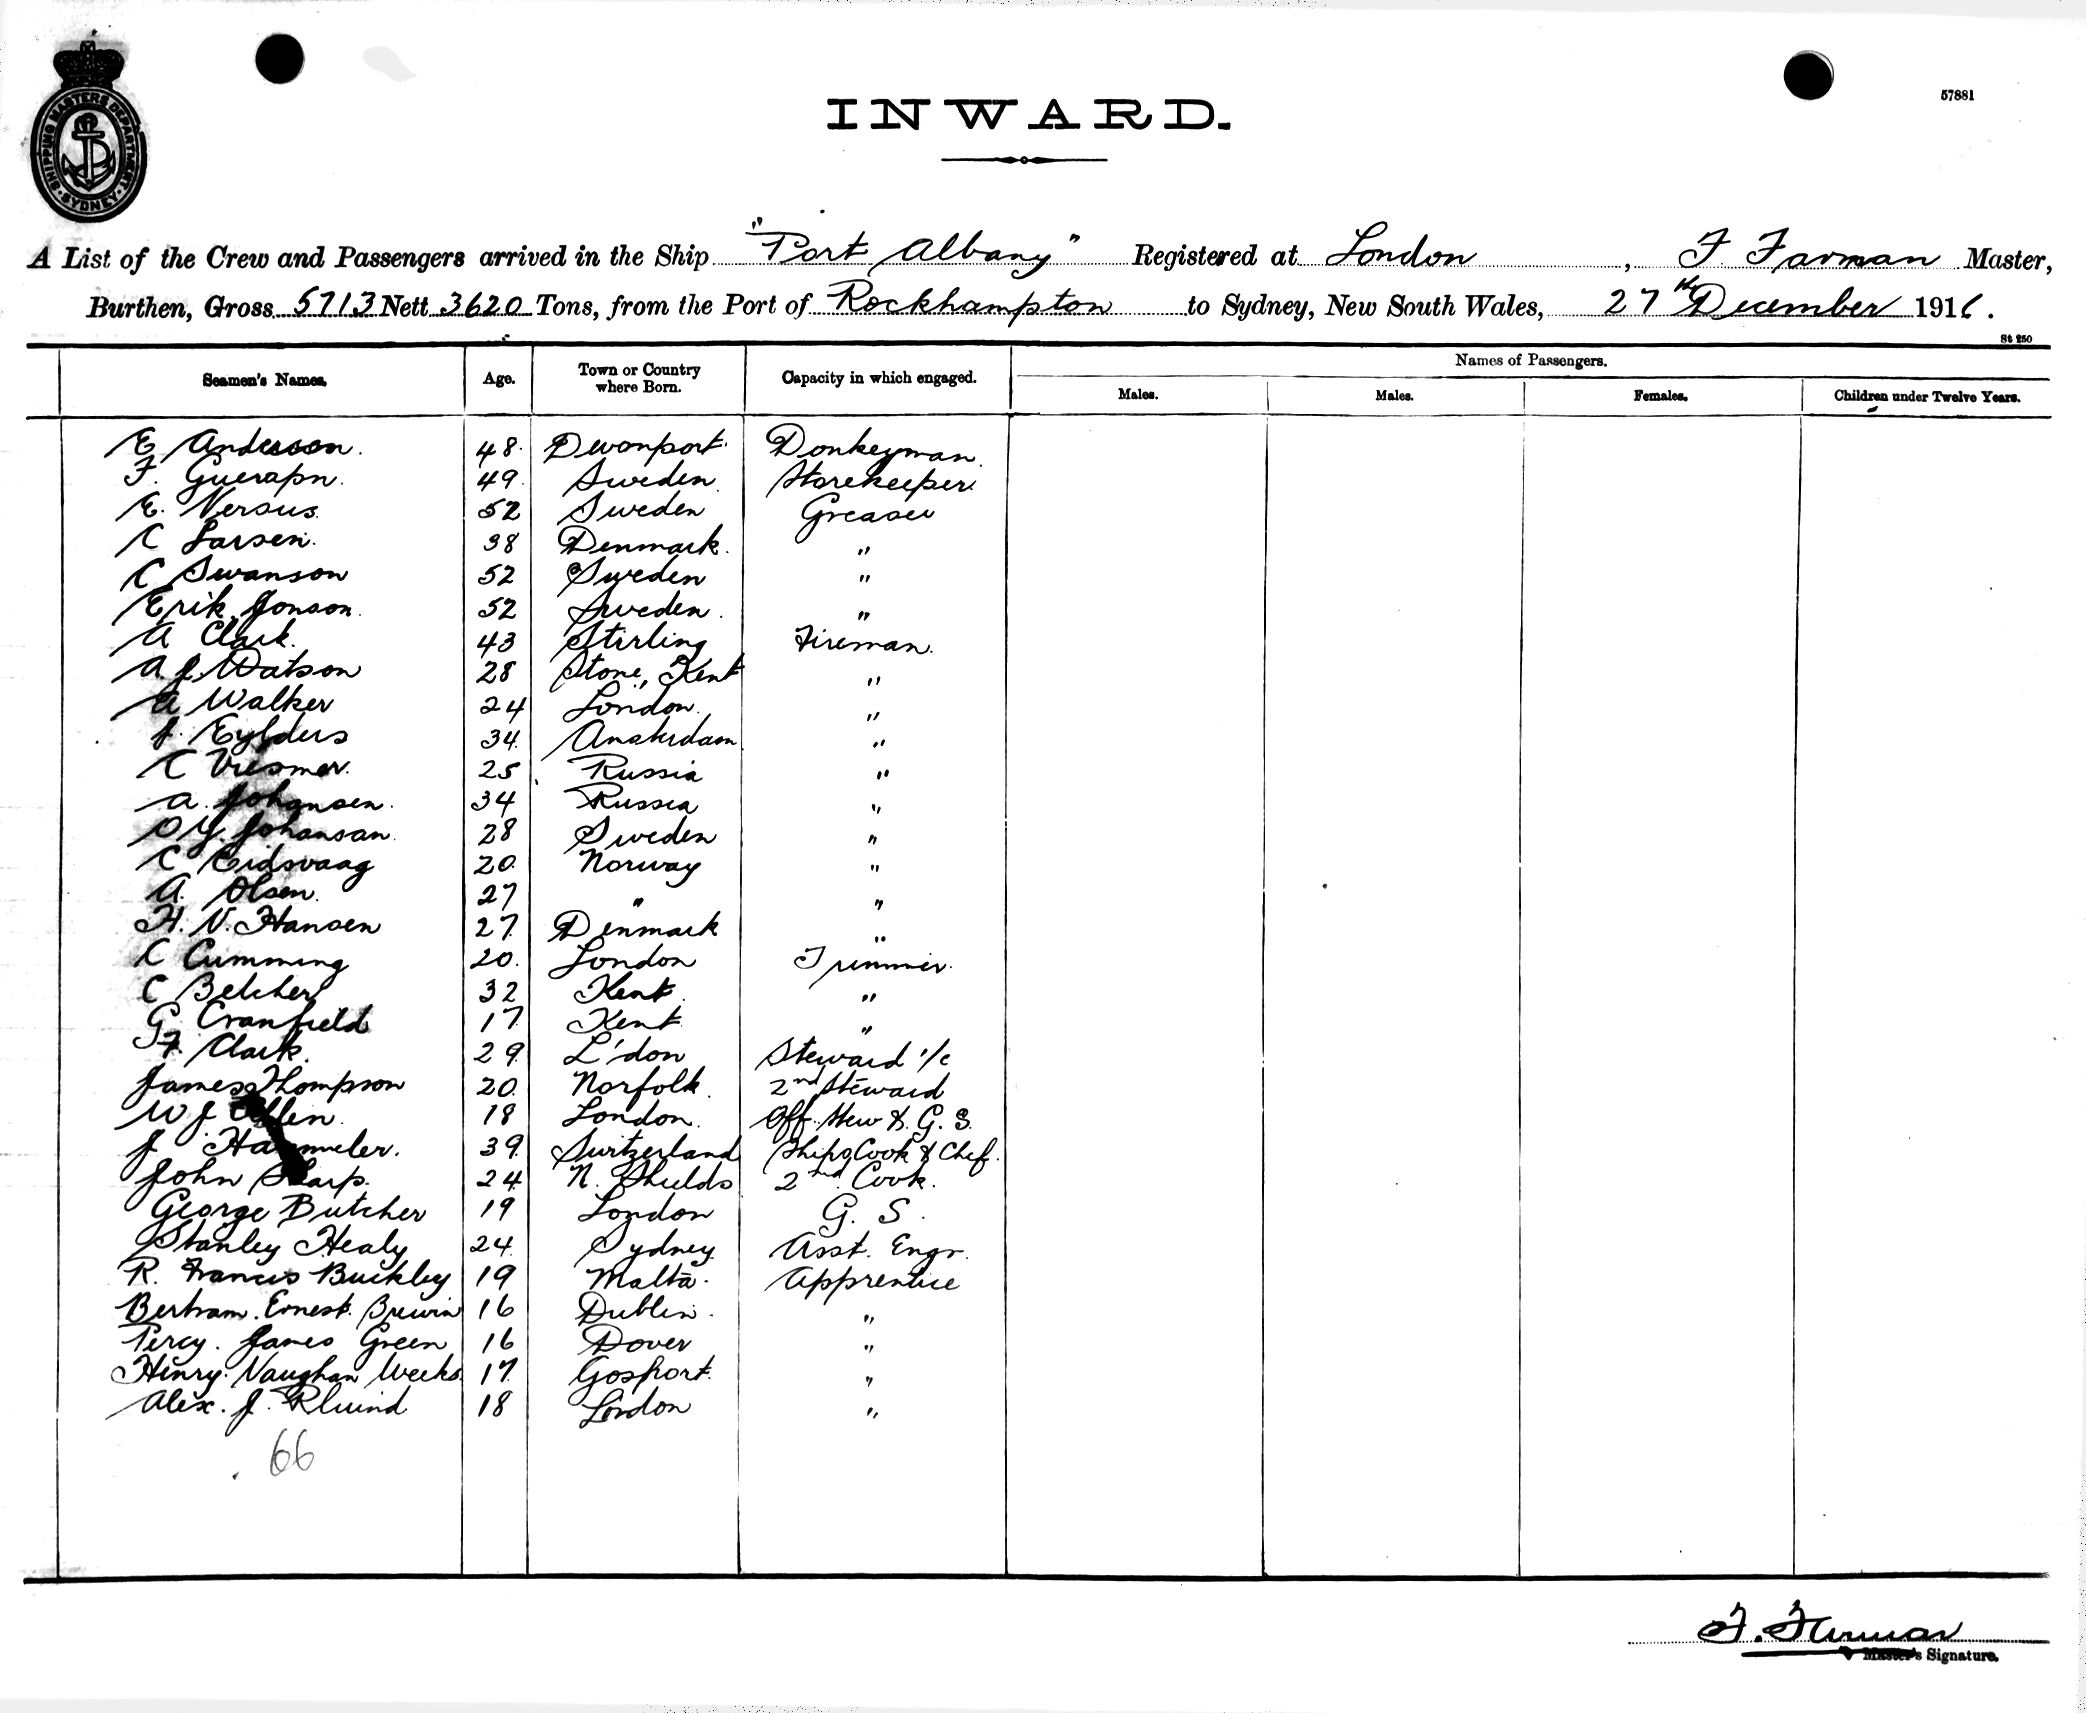 SHIPPING MASTERS DEPARTMENT SYDNEY
57881
INWARD.
A List of the Crew and Passengers arrived in the Ship "Port Albany" Registered at London, F Farman Master,
Burthen, Gross 5713 Nett 3620 Tons, from the Port of Rockhampton to Sydney, New South Wales, 27th December 1916.
St 250
Seamen's Names. Age. Town or Country where Born. Capacity in which engaged. Names of Passengers.
Males. Males. Females. Children under Twelve Years.
E Anderson. 48. Devonport. Donkeyman.
F. 49 Sweden Storekeeper.
E. Versus 52 Sweden Greaser
C Larsen. 38 Denmark. "
C Swanson 52 Sweden "
Erik Jonson. 52 Sweden. "
A Clark. 43 Stirling Fireman.
A J Watson 28 Stone, Kent "
A Walker 24 London. "
J. Eylders 34. Amsterdam "
C Viesmer. 25 Russia "
A. Johansen. 34 Russia "
O Y. Johansan. 28 Sweden "
C Eidsvaag 20. Norway "
A. Olsen. 27 " "
H. N. Hansen 27 Denmark "
C Cumming 20. London Trimmer.
C Belcher 32 Kent. "
G Cranfield 17 Kent "
F. Clark. 29 L'don Steward i/c
James Thompson 20. Norfolk. 2nd Steward
W J Allen. 18 London. Off. Stew &. G. S.
J. 39 Switzerland Ships Cook & Chef.
John Sharp. 24. N. Shields 2nd Cook.
George Butcher 19 London G. S.
Stanley Healy 24. Sydney Asst. Engr.
R. Francis Buckley 19 Malta. Apprentice
Bertram. Ernest. Brewin 16 Dublin. "
Percy. James Green 16 Dover "
Henry. Vaughan Weeks 17 Gosport. "
Alex. J. 18 London "
66
F. Farman
Master's Signature.